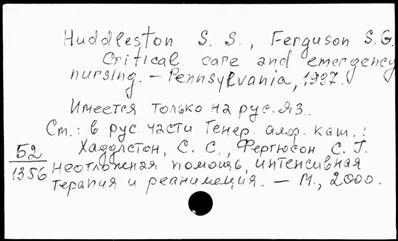 Huddleston S. S., Ferguson S.G.
Critical care and emergency
nursing. – Pennsylvania, 1997.
Имеется только на рус. яз.
См.: в рус. части Генер. алф. кат.:
52
1356
Хаддлстон, С. С., Фергюсон С. Г.
Неотложная помощь, интенсивная
терапия и реанимация. – М., 2000.